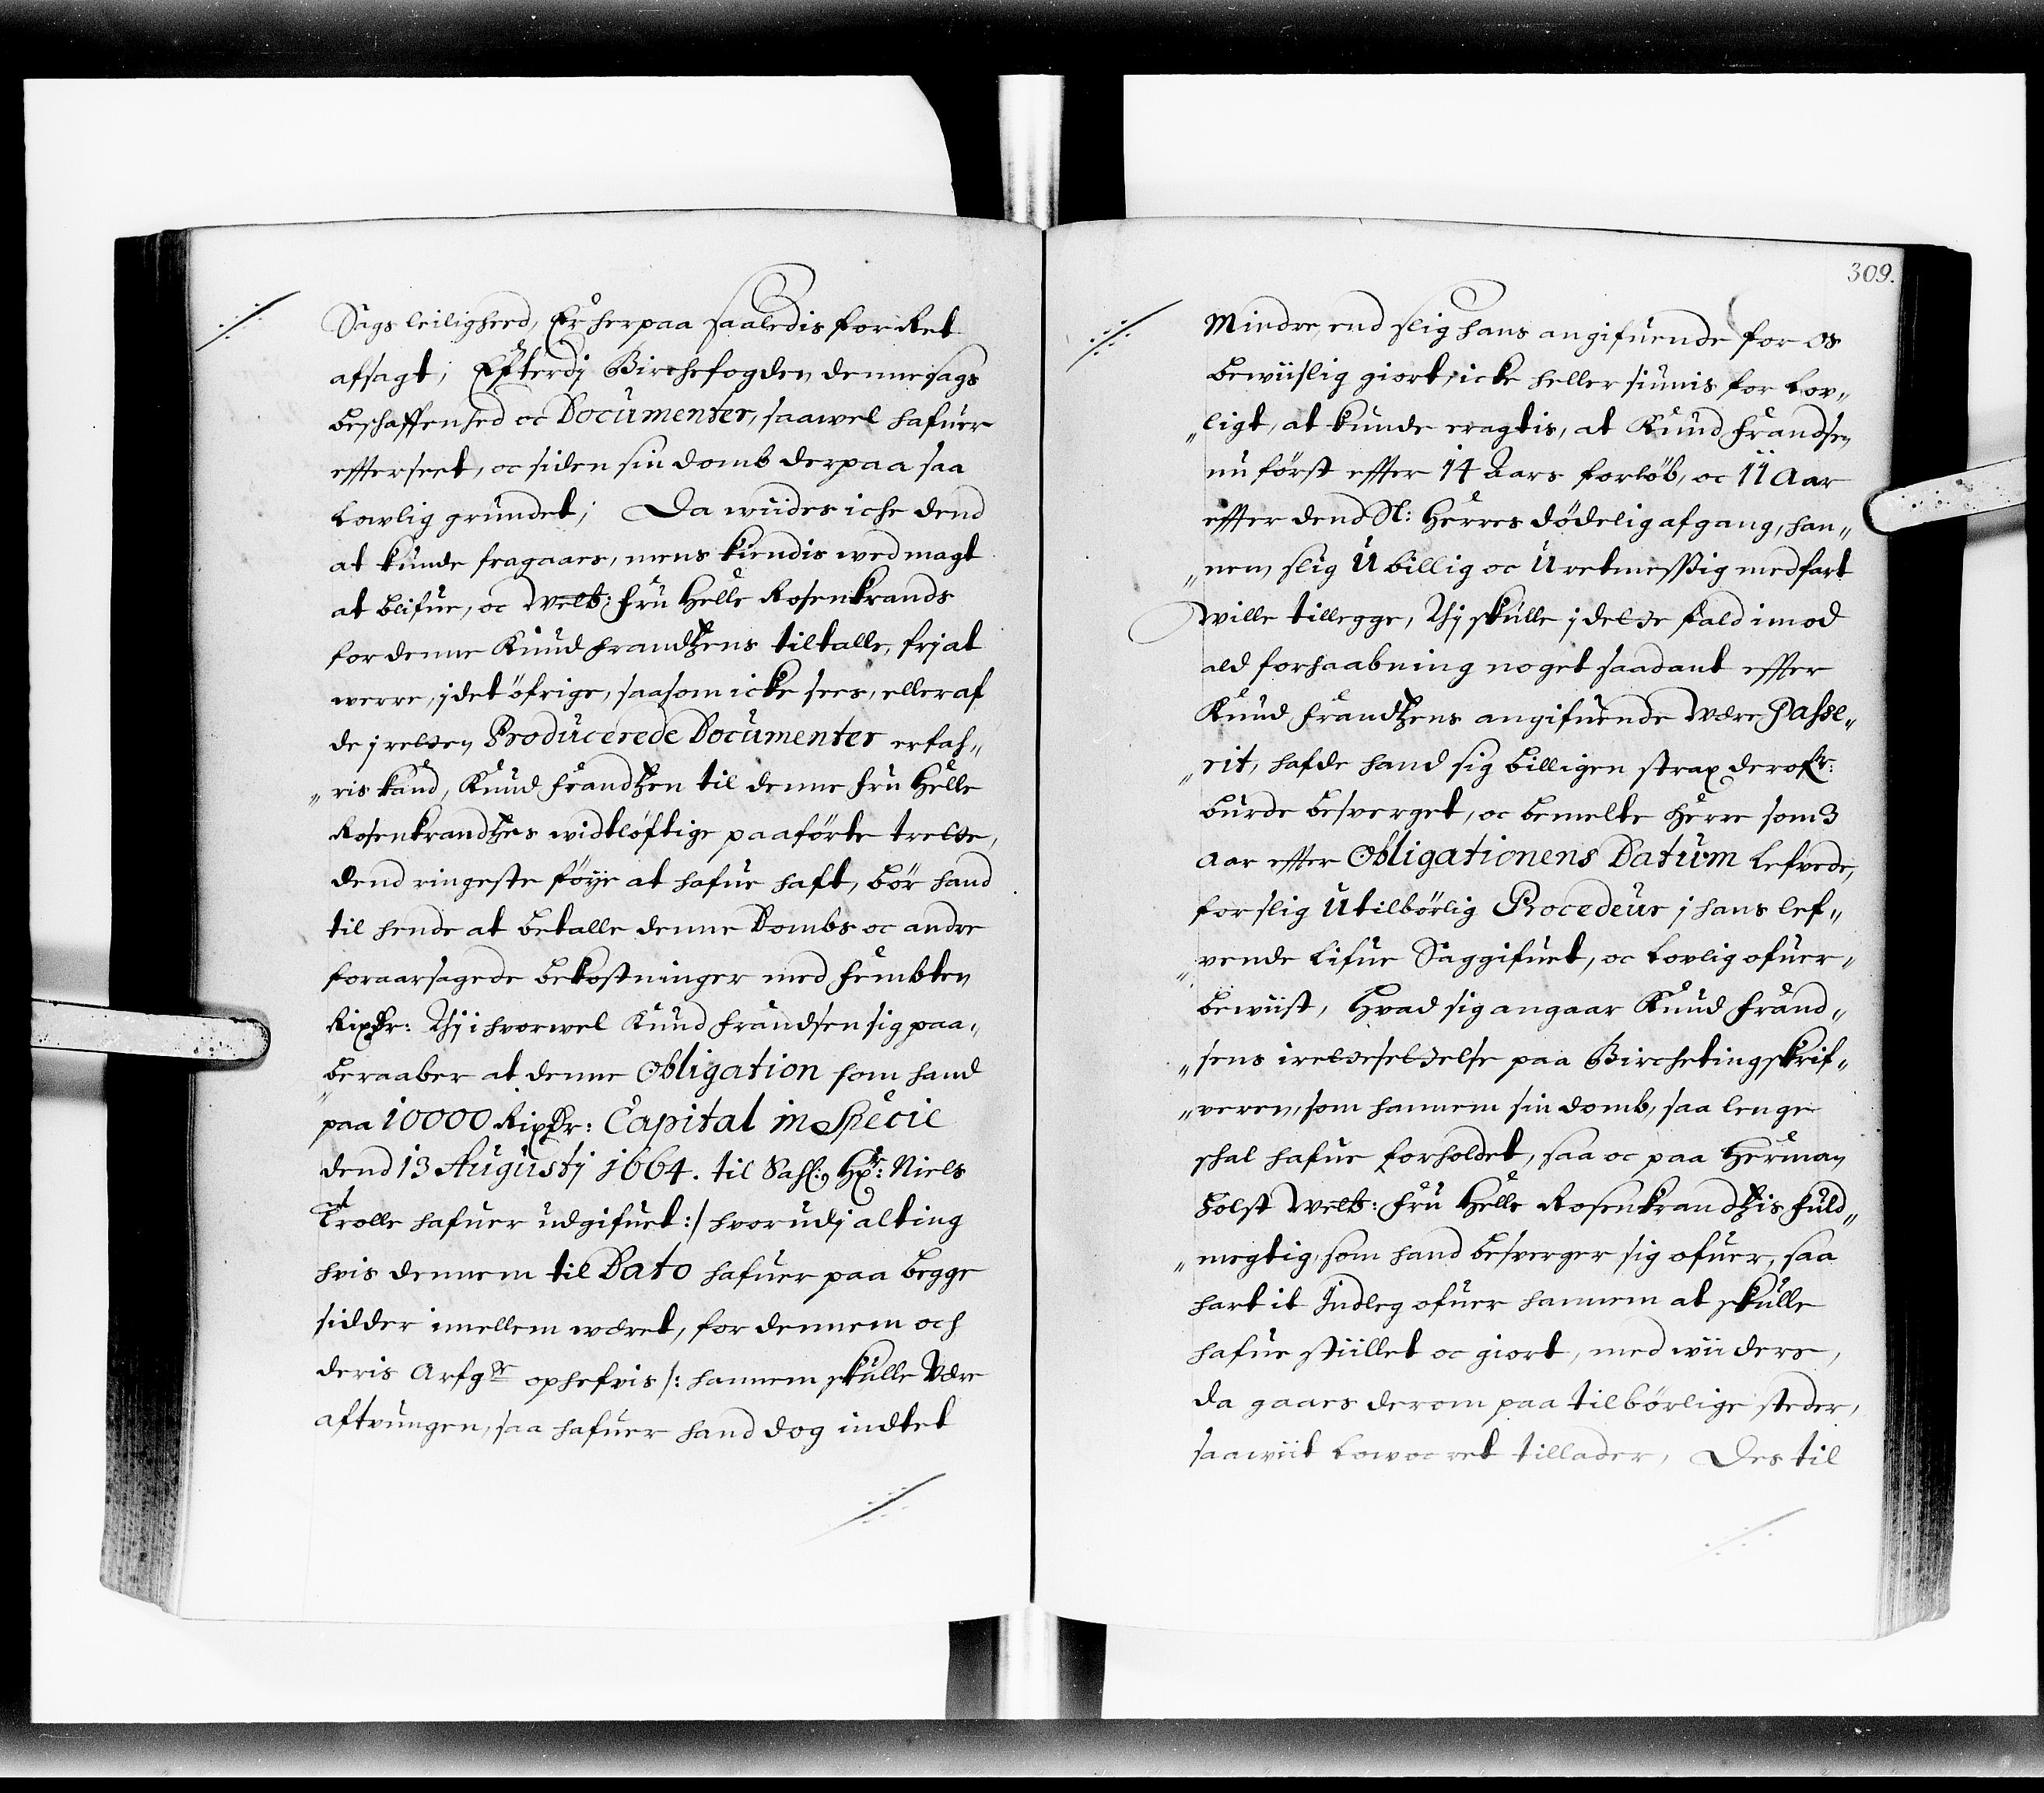 Sags leiligheed, Er herpaa saaledis for Ret
afsagt; Efterdj Birchefogden denne sags
beschaffenhed oc Documenter, saawel hafuer
efterseet, oc siden sin domb derpaa saa
Lovlig grundet; Da wiides iche dend
at kunde fragaaes, mens kiendis wed magt
at blifue, oc Welb: Fru Helle Rosenkrands
for denne Knud Frandtzens tiltalle, frj at
werre, j det öfrige, saasom icke sees, eller af
de j rette Producerede Documenter erfah„
„ris kand, Knud Frandtzen til denne Fru Helle
Rosenkrandtzes widtlöftige paaförte trette,
dend ringeste föye at hafue haft, bör hand
til hende at betalle denne Dombs oc andre
foraarsagede bekostninger med Fembten
Rixdr: Thj i hvorwel Knud Frandsen sig paa„
„beraaber at denne Obligation som hand
paa 10000 Rixdr: Capital in Specie
dend 13 Augustj 1664. til Sahl: Hr: Niels
Trolle hafuer udgifuet :/ hvorudj alting
hvis dennem til Dato hafuer paa begge
sidder imellem wæret, for dennem och
deris Arfger ophefvis /: hannem skulle Være
aftvungen, saa hafuer hand dog indtet
309.
Mindre, end slig hans angifuende for os
bewiislig giort, icke heller siunis for Lov„
„ligt, at kunde eragtis, at Knud Frandsen
nu först effter 14 Aars forlöb, oc 11 Aar
effter dend Sl: Herres dödelig afgang, han„
„nem slig Ubillig oc Uretmessig medfart
wille tillegge, Thj skulle j dette fald imod
ald forhaabning noget saadant effter
Knud Frandtzens angifuende Være Passe„
„rit, hafde hand sig billigen strax derofr:
burde besverget, oc bemelte Herre som 3
Aar effter Obligationens Datum Lefvede,
for slig Utilbörlig Procedeur j hans lef„
„vende Lifue Saggifuet, oc Lovlig ofuer„
bewiist, Hvad sig angaar Knud Frand„
„sens irettesettelse paa Birchetingskrif„
„veren, som hannem sin domb, saa lenge
schal hafue forholdet, saa oc paa Herman
Holst Welb: Fru Helle Rosenkrandtzis Fuld„
„megtig, som hand besverger sig ofuer, saa
hart it Indleg ofuer hannem at skulle
hafue stiillet oc giort, med wiidere,
da gaaes derom paa tilbörlige steder,
saawiit Low oc ret tillader, Des til